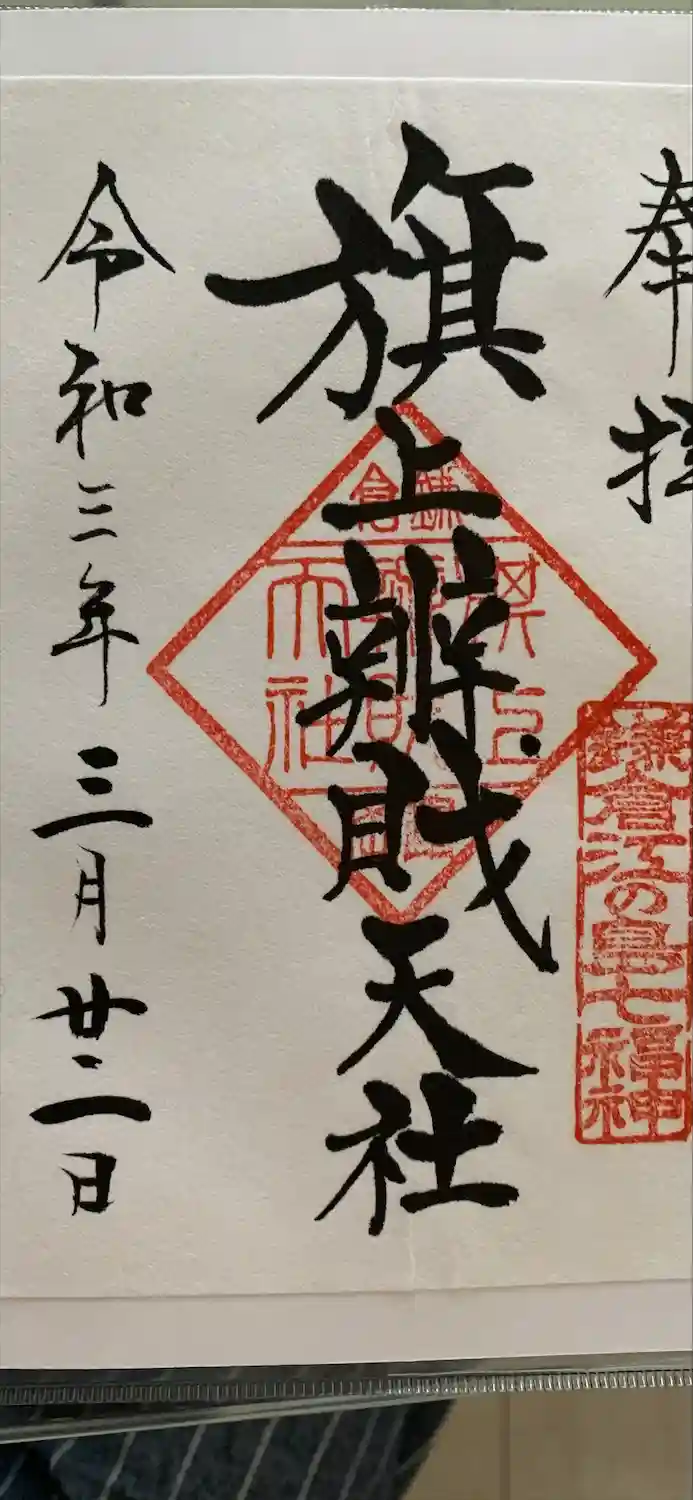 奉拝
鎌倉江の島七福神
旗上辨財天社
鎌倉
令和三年三月廿二日